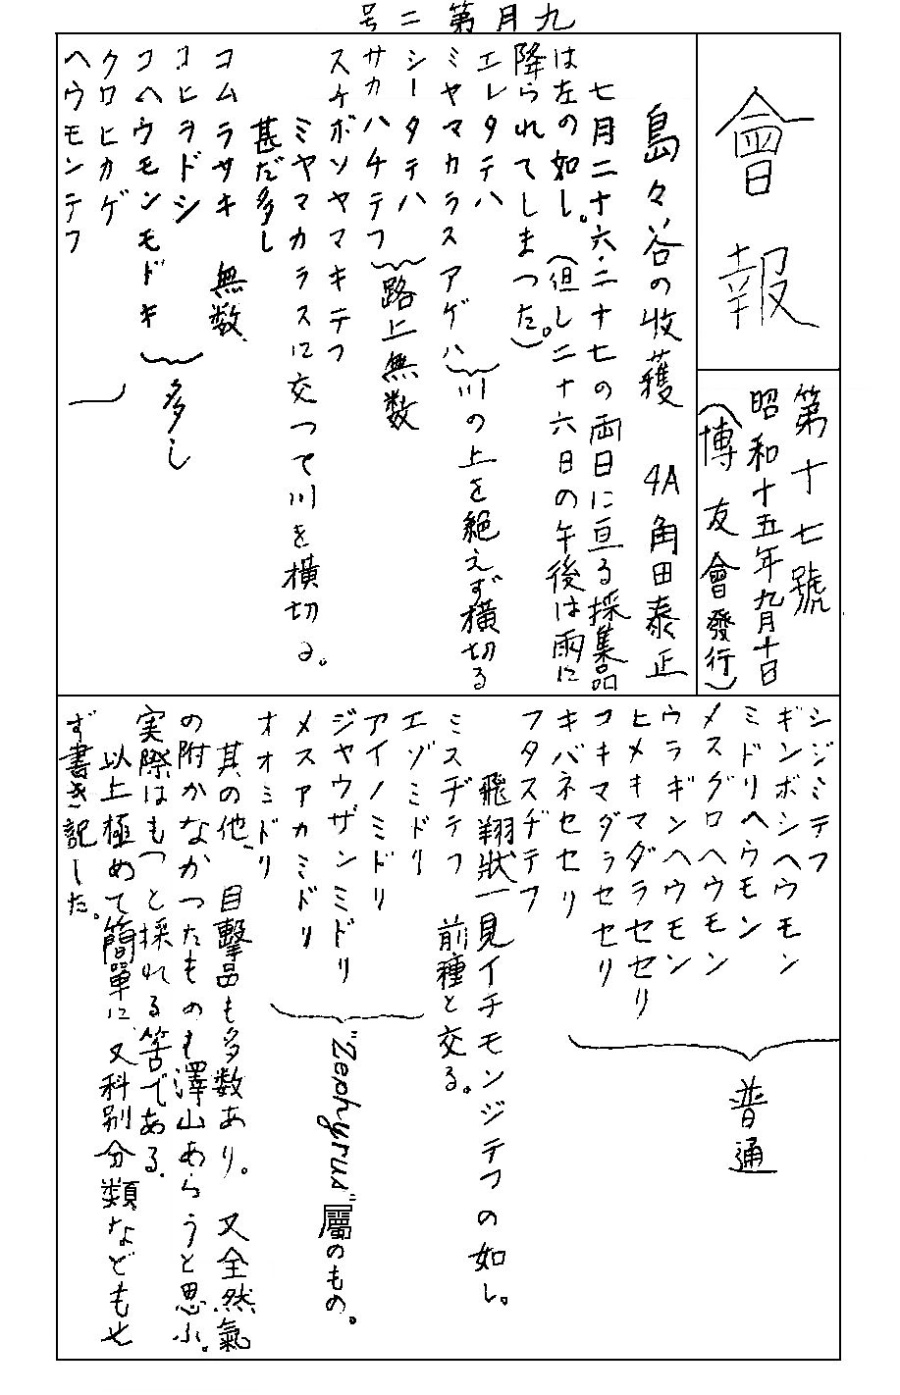 九月第二号
會報
第十七號
昭和十五年九月十日
(博友會發行)
島々谷の收獲　4A 角田泰正
七月二十六・二十七の両日に亘る採集品
は左の如し。(但し二十六日の午後は雨に
降られてしまつた。)
エレタテハ
ミヤマカラスアゲハ　川の上を絶えず横切る
シータテハ
サカハチテフ　路上無数
スヂボソヤマキテフ
ミヤマカラスに交つて川を横切る。
甚だ多し
コムラサキ　無数
コヒヲドシ
コヘウモンモドキ　多し
クロヒカゲ
ヘウモンテフ
シジミテフ
ギンボシヘウモン
ミドリヘウモン
メスグロヘウモン
ウラギンヘウモン
ヒメキマダラセセリ
コキマダラセセリ
キバネセセリ
普通
フタスヂテフ
飛翔狀一見イチモンジテフの如し。
ミスヂテフ　前種と交る。
エゾミドリ
アイノミドリ
ジヤウザンミドリ
メスアカミドリ
オオミドリ
"Zephyrus"屬のもの。
其の他、目擊品も多数あり。又全然氣
の附かなかつたものも澤山あらうと思ふ。
実際はもつと採れる筈である。
以上極めて簡單に、又科別分類などもせ
ず書き記した。